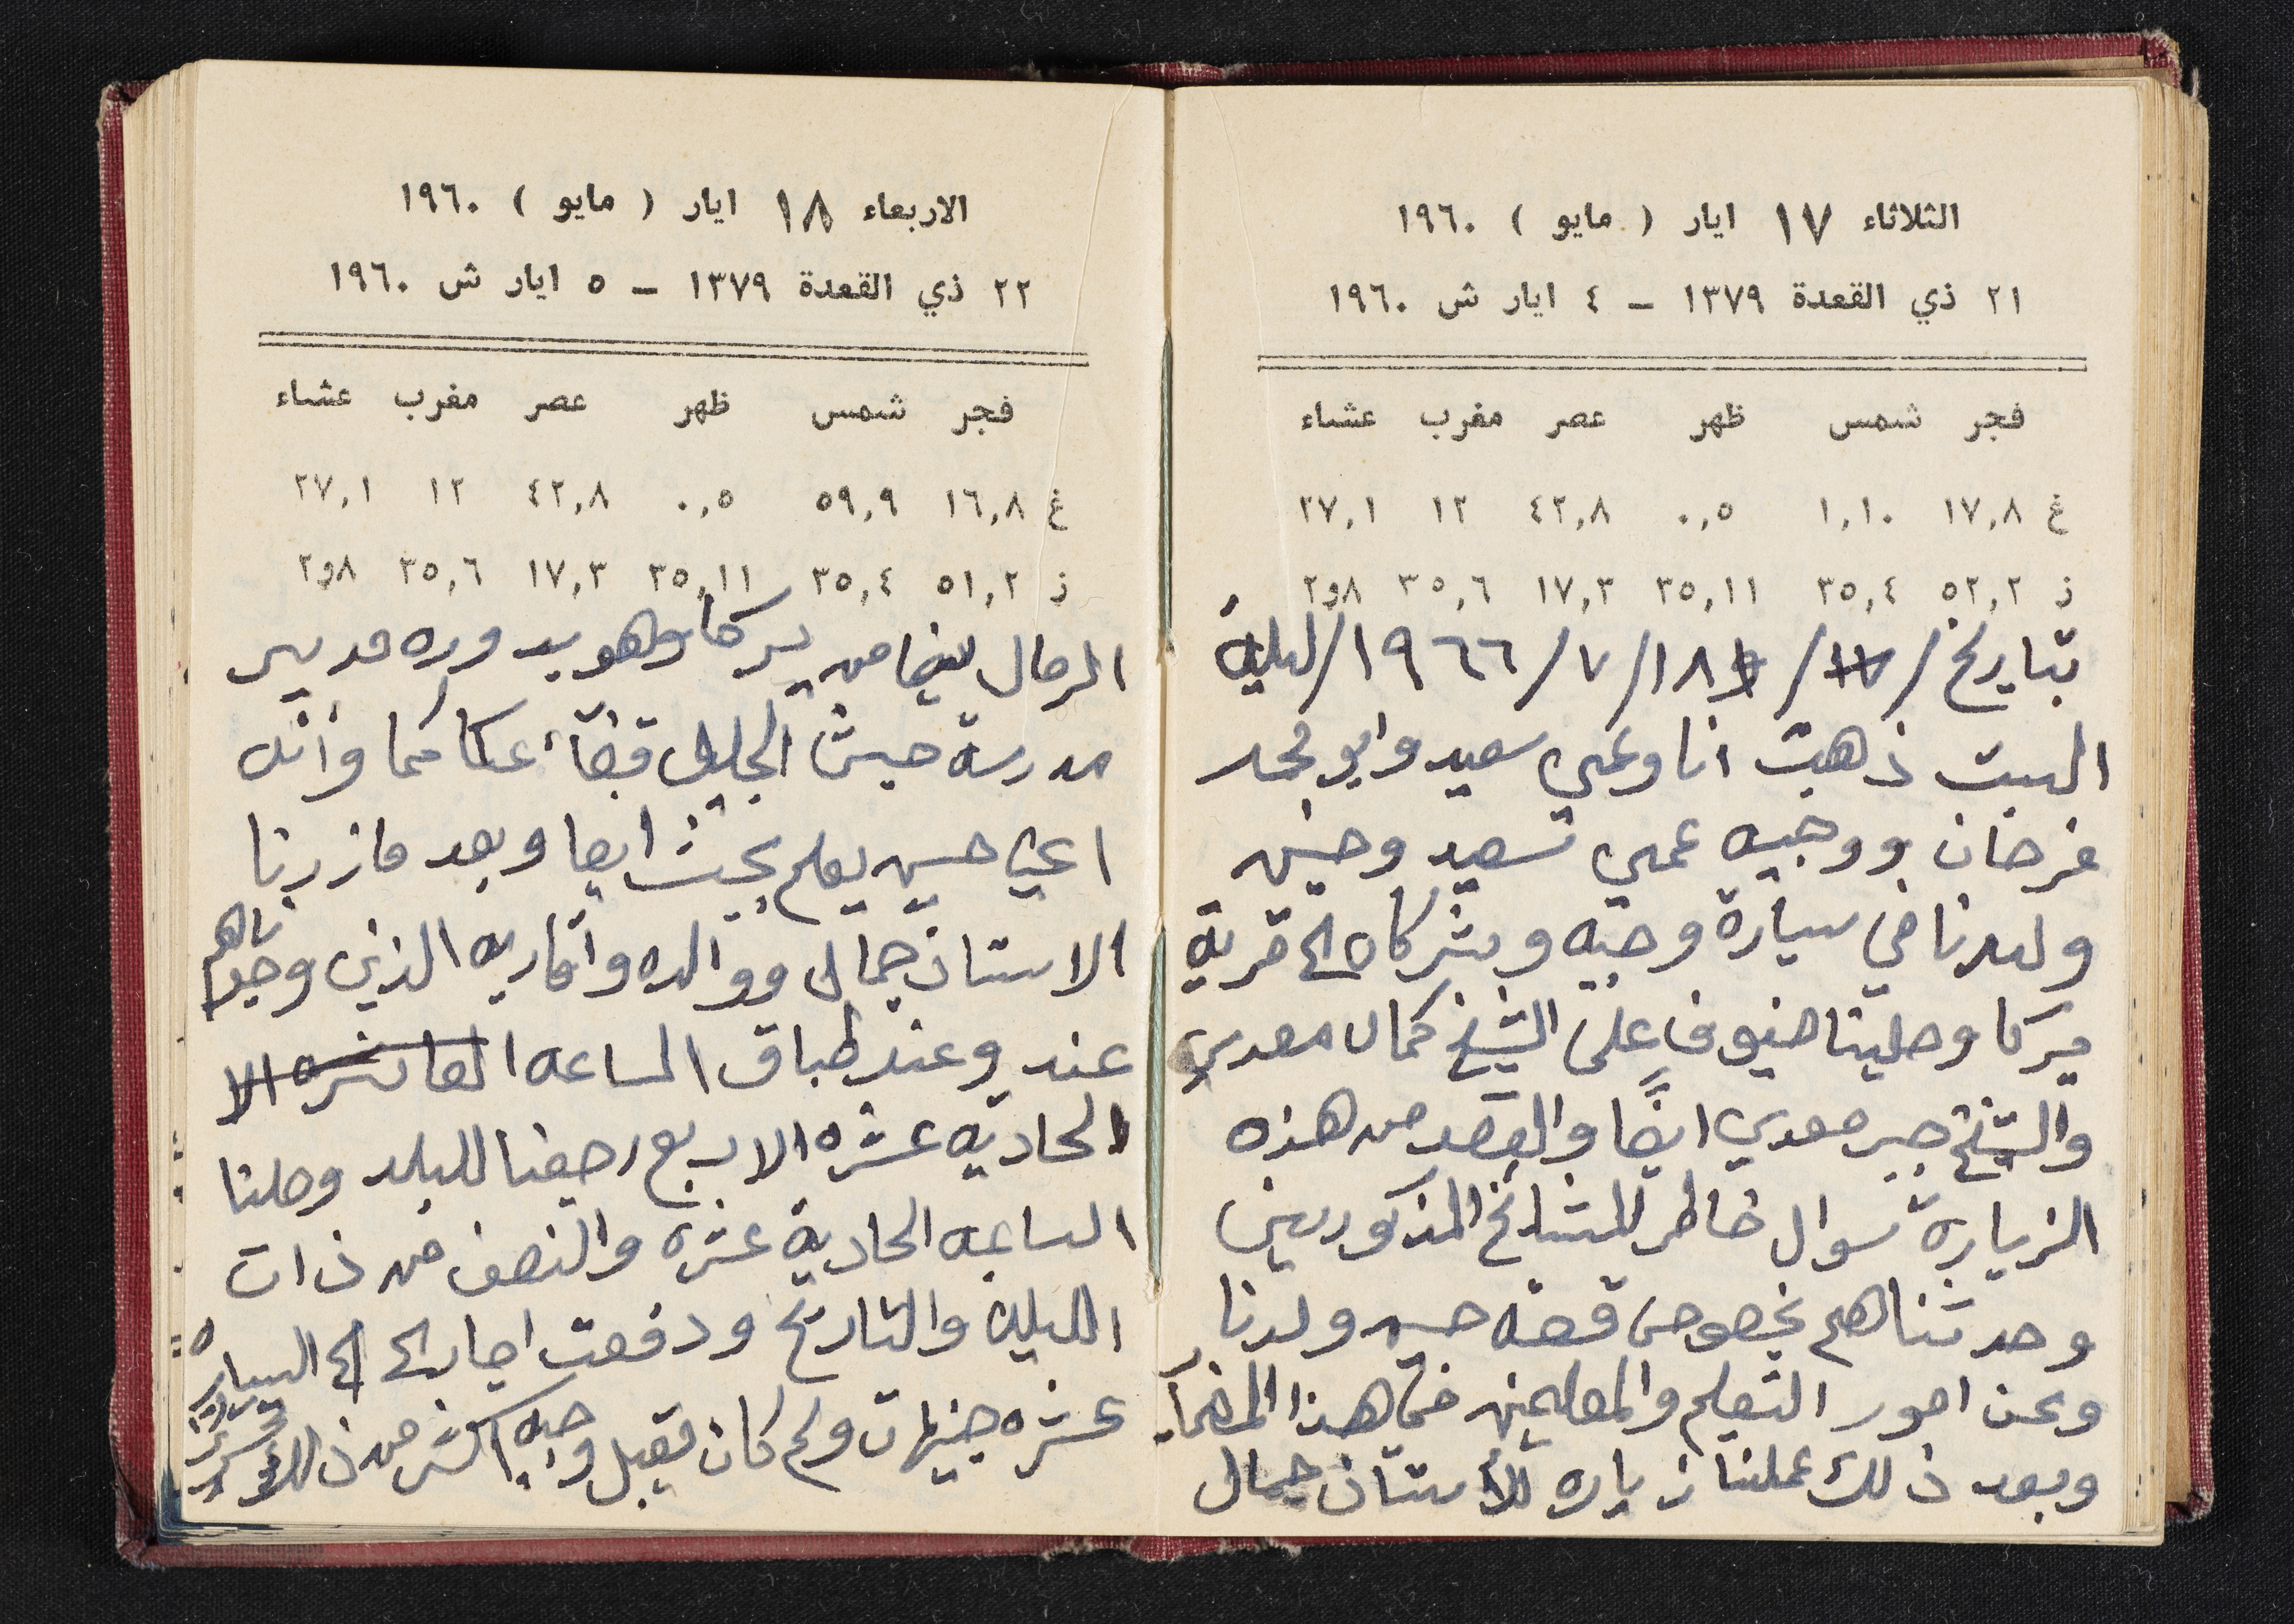 الثلاثاء ١٧ ايار ( مايو ) ١٩٦٠
٢١ ذي القعدة ١٣٧٩ – ٤ ايار ش ١٩٦٠
فجر شمس ظهر عصر مغرب عشاء
غ ١٧,٨ ١,١٠ ٠,٥ ٤٢,٨ ١٢ ٢٧,١
ز ٥٢,٢ ٣٥,٤ ٣٥,١١ ١٧,٣ ٣٥,٦ ٢و٨
بتاريخ / ١٨ / ٧ / ١٩٦٦ / ليلة
السبت ذهبت انا وعمي سعيد وابو محمد
فرحان ووجيه عمي سعيد وحسن
ولدنا في سيارة وجيه وبشركاه الى قرية
يركا وحلينا ضيوف على الشيخ كمال معدي
والشيخ جبر معدي ايضًا والقصد من هذه
الزياره سوال خاطر للمشائخ المذكورين
وحدثناهم بخصوص قصة حسن ولدنا
وعن امور التعليم والمعلمين في هذا المضمار
وبعد ذلك عملنا زياره للأستاذ جمال
الاربعاء ١٨ ايار ( مايو ) ١٩٦٠
٢٢ ذي القعدة ١٣٧٩ – ٥ ايار ش ١٩٦٠
فجر شمس ظهر عصر مغرب عشاء
غ ١٦,٨ ٥٩,٩ ٠,٥ ٤٢,٨ ١٢ ٢٧,١
ز ٥١,٢ ٣٥,٤ ٣٥,١١ ١٧,٣ ٣٥,٦ ٢و٨
من يركا وهو بدوره مدير
مدرسة جث الجليل قضآء عكا كما وأنه
اعني حسن يعلم بجث ايضا وبعد ما زرنا
الاستاذ جمال ووالده واقاربه الذين وجدناهم
عند وعند طباق الساعه العاشره الا
الحاديه عشره الا ربع رجعنا للبلد وصلنا
الساعه الحادية عشره والنصف من ذات
الليله والتاريخ ودفعت اجار الى السياره
عشره جنيهات ولم كان يقبل وجيه اكثر من ذلك